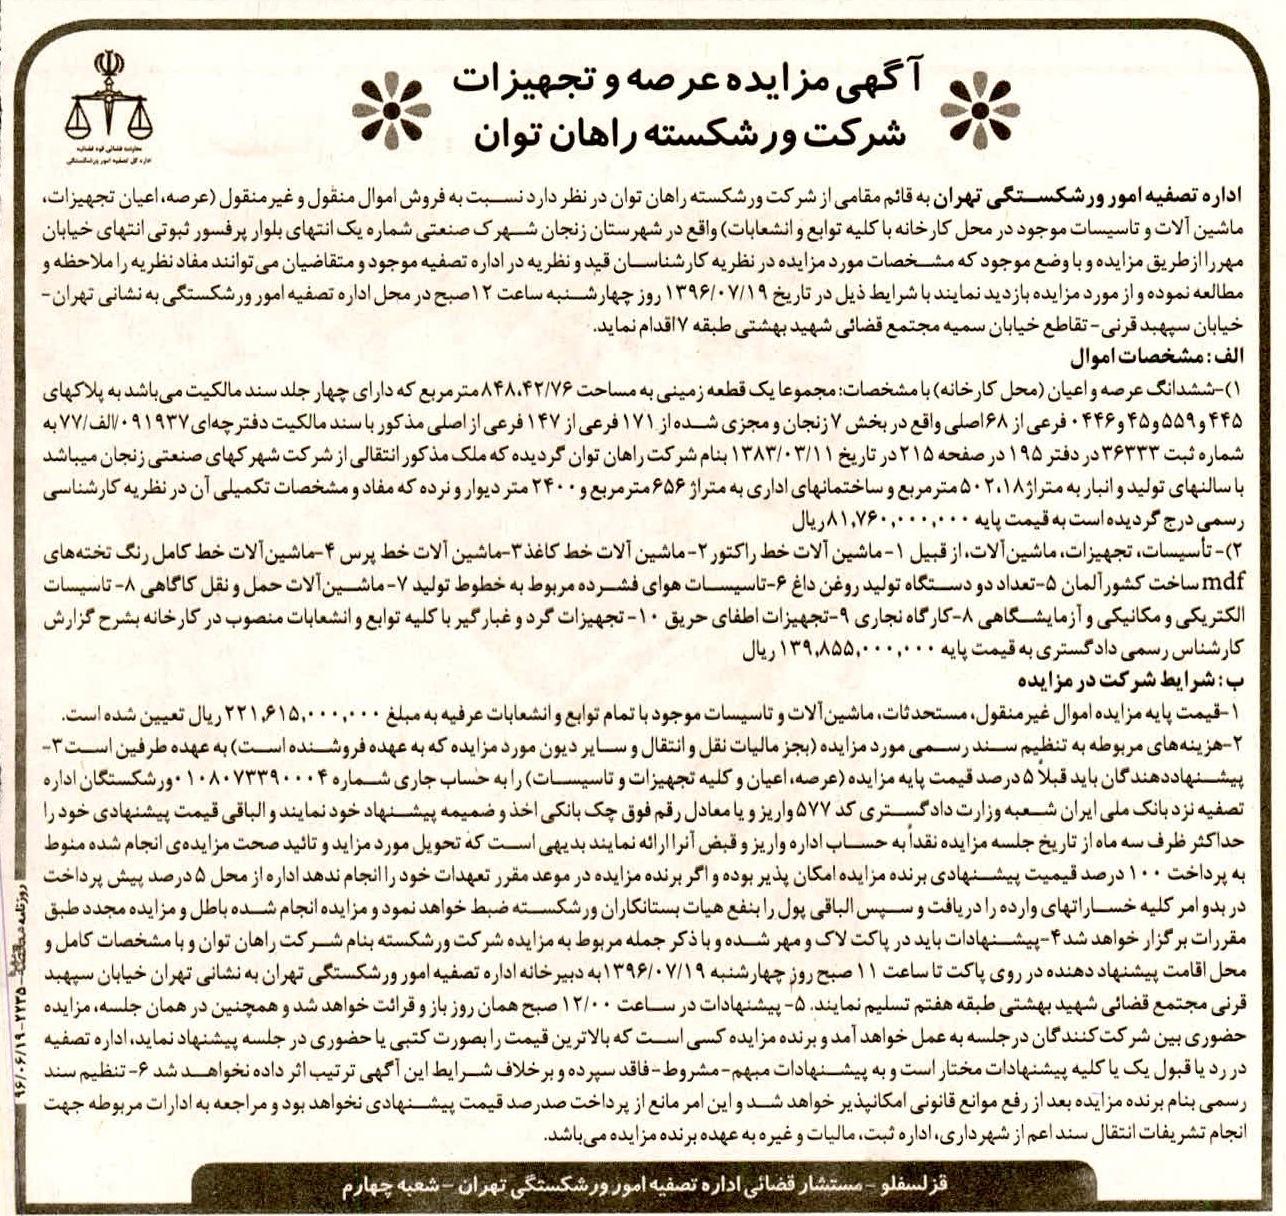 آگهی مزایده عرصه و تجهیزات
شرکت ورشکسته راهان توان
معاونت قضائی قوه قضائیه
اداره کل تصفیه امور ورشکستگی
اداره تصفیه امور ورشکستگی تهران به قائم مقامی از شرکت ورشکسته راهان توان در نظر دارد نسبت به فروش اموال منقول و غیر منقول (عرصه، اعیان تجهیزات،
ماشین آلات و تاسیسات موجود در محل کارخانه با کلیه توابع و انشعابات) واقع در شهرستان زنجان شهرک صنعتی شماره یک انتهای بلوار پرفسور ثبوتی انتهای خیابان
مهر را از طریق مزایده و با وضع موجود که مشخصات مورد مزایده در نظریه کارشناسان قید و نظریه در اداره تصفیه موجود و متقاضیان می‌توانند مفاد نظریه را ملاحظه و
مطالعه نموده و از مورد مزایده بازدید نمایند با شرایط ذیل در تاریخ ۱۳۹۶/۰۷/۱۹ روز چهارشنبه ساعت ۱۲صبح در محل اداره تصفیه امور ورشکستگی به نشانی تهران-
خیابان سپهبد قرنی-تقاطع خیابان سمیه مجتمع قضائی شهید بهشتی طبقه ۷اقدام نماید.
الف: مشخصات اموال
۱)-ششدانگ عرصه و اعیان (محل کارخانه) با مشخصات: مجموعا یک قطعه زمینی به مساحت ۸۴۸،۴۲/۷۶ مترمربع که دارای چهار جلد سند مالکیت می‌باشد به پلاکهای
۴۴۵و۵۵۹و۴۵و۰۴۴۶ فرعی از ۶۸اصلی واقع در بخش ۷زنجان و مجزی شده از ۱۷۱ فرعی از ۱۴۷ فرعی از اصلی مذکور با سند مالکیت دفترچه‌ای۰۹۱۹۳۷/الف/۷۷ به
شماره ثبت ۳۶۳۳۳در دفتر ۱۹۵ در صفحه ۲۱۵در تاریخ ۱۳۸۳/۰۳/۱۱ بنام شرکت راهان توان گردیده که ملک مذکور انتقالی از شرکت شهرکهای صنعتی زنجان میباشد
با سالنهای تولید و انبار به متراژ۵۰۲،۱۸مترمربع و ساختمانهای اداری به متراژ ۶۵۶مترمربع و ۲۴۰۰ متر دیوار و نرده که مفاد و مشخصات تکمیلی آن در نظریه کارشناسی
رسمی درج گردیده است به قیمت پایه ۸۱,۷۶۰,۰۰۰,۰۰۰ریال
۲)- تأسیسات، تجهیزات، ماشین‌آلات، از قبیل ۱-ماشین آلات خط راکتور ۲-ماشین آلات خط کاغذ ۳-ماشین آلات خط پرس ۴-ماشین‌آلات خط کامل رنگ تخته‌های
mdf ساخت کشور آلمان ۵-تعداد دو دستگاه تولید روغن داغ ۶-تاسیسات هوای فشرده مربوط به خطوط تولید ۷-ماشین‌آلات حمل و نقل کاگاهی ۸-تاسیسات
الکتریکی و مکانیکی و آزمایشگاهی ۸-کارگاه نجاری ۹-تجهیزات اطفای حریق ۱۰-تجهیزات گرد و غبارگیر با کلیه توابع و انشعابات منصوب در کارخانه بشرح گزارش
کارشناس رسمی دادگستری به قیمت پایه ۱۳۹,۸۵۵,۰۰۰,۰۰۰ ریال
ب: شرایط شرکت در مزایده
۱-قیمت پایه مزایده اموال غیرمنقول، مستحدثات، ماشین‌آلات و تاسیسات موجود با تمام توابع و انشعابات عرفیه به مبلغ ۲۲۱,۶۱۵,۰۰۰,۰۰۰ ریال تعیین شده است.
۲-هزینه‌های مربوطه به تنظیم سند رسمی مورد مزایده (بجز مالیات نقل و انتقال و سایر دیون مورد مزایده که به عهده فروشنده است) به عهده طرفین است ۳-
پیشنهاددهندگان باید قبلاً ۵ درصد قیمت پایه مزایده (عرصه، اعیان و کلیه تجهیزات و تاسیسات) را به حساب جاری شماره ۰۱۰۸۰۷۳۳۹۰۰۰۴ورشکستگان اداره
تصفیه نزد بانک ملی ایران شعبه وزارت دادگستری کد ۵۷۷واریز و یا معادل رقم فوق چک بانکی اخذ و ضمیمه پیشنهاد خود نمایند و الباقی قیمت پیشنهادی خود را
حداکثر ظرف سه ماه از تاریخ جلسه مزایده نقداً به حساب اداره واریز و قبض آنرا ارائه نمایند بدیهی است که تحویل مورد مزاید و تائید صحت مزایده‌ی انجام شده منوط
به پرداخت ۱۰۰ درصد قیمیت پیشنهادی برنده مزایده امکان پذیر بوده و اگر برنده مزایده در موعد مقرر تعهدات خود را انجام ندهد اداره از محل ۵ درصد پیش پرداخت
در بدو امر کلیه خساراتهای وارده را دریافت و سپس الباقی پول را بنفع هیات بستانکاران ورشکسته ضبط خواهد نمود و مزایده انجام شده باطل و مزایده مجدد طبق
مقررات برگزار خواهد شد ۴-پیشنهادات باید در پاکت لاک و مهر شده و با ذکر جمله مربوط به مزایده شرکت ورشکسته بنام شرکت راهان توان و با مشخصات کامل و
محل اقامت پیشنهاد دهنده در روی پاکت تا ساعت ۱۱ صبح روز چهارشنبه ۱۳۹۶/۰۷/۱۹به دبیرخانه اداره تصفیه امور ورشکستگی تهران به نشانی تهران خیابان سپهبد
قرنی مجتمع قضائی شهید بهشتی طبقه هفتم تسلیم نمایند. ۵- پیشنهادات در ساعت ۱۲/۰۰ صبح همان روز باز و قرائت خواهد شد و همچنین در همان جلسه، مزایده
حضوری بین شرکت‌کنندگان در جلسه به عمل خواهد آمد و برنده مزایده کسی است که بالاترین قیمت را بصورت کتبی یا حضوری در جلسه پیشنهاد نماید، اداره تصفیه
در رد یا قبول یک یا کلیه پیشنهادات مختار است و به پیشنهادات مبهم-مشروط-فاقد سپرده و بر خلاف شرایط این آگهی ترتیب اثر داده نخواهد شد ۶-تنظیم سند
رسمی بنام برنده مزایده بعد از رفع موانع قانونی امکانپذیر خواهد شد و این امر مانع از پرداخت صد رصد قیمت پیشنهادی نخواهد بود و مراجعه به ادارات مربوطه جهت
انجام تشریفات انتقال سند اعم از شهرداری، اداره ثبت، مالیات و غیره به عهده برنده مزایده می‌باشد.
قزلسفلو - مستشار قضائی اداره تصفیه امور ورشکستگی تهران - شعبه چهارم
روزنامه ۲۲۳۵-۹۶/۰۶/۱۹